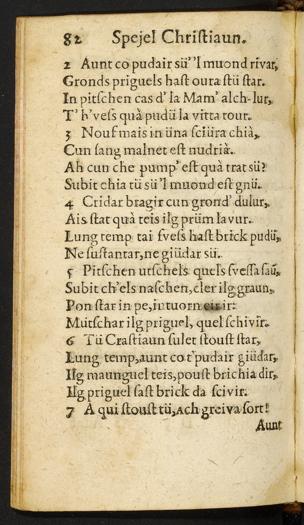 82 Spejel Christiaun.
2 Aunt co pudair sü' 'l muond rivar,
Gronds priguels hast oura stü star.
In pitschen cas d' la Mam' alch-lur,
T' h'vess quà pudü la vitta tour.
3 Nouf mais in üna sciüra chià,
Cun sang malnet est nudrià.
Ah cun che pump' est quà trat sü?
Subit chia tü sü'l muond est gnü.
4 Cridar bragir cun grond' dulur,
Ais stat quà teis ilg prüm lavur.
Lung temp tai svess hast brick pudü,
Ne sustantar, ne giüdar sü.
5 Pitschen utschels quels svessa saü,
Subit ch'els naschen, cler ilg graun,
Pon star in pe, intuorn eir ir:
Mütschar ilg priguel, quel schivir.
6 Tü Crastiaun sulet stoust star,
Lung temp, aunt co t'pudair giüdar,
Ilg maunguel teis, poust brichia dir,
Ilg priguel sast brick da scivir.
7 A qui stoust tü, Ach greiva sort!
Aunt